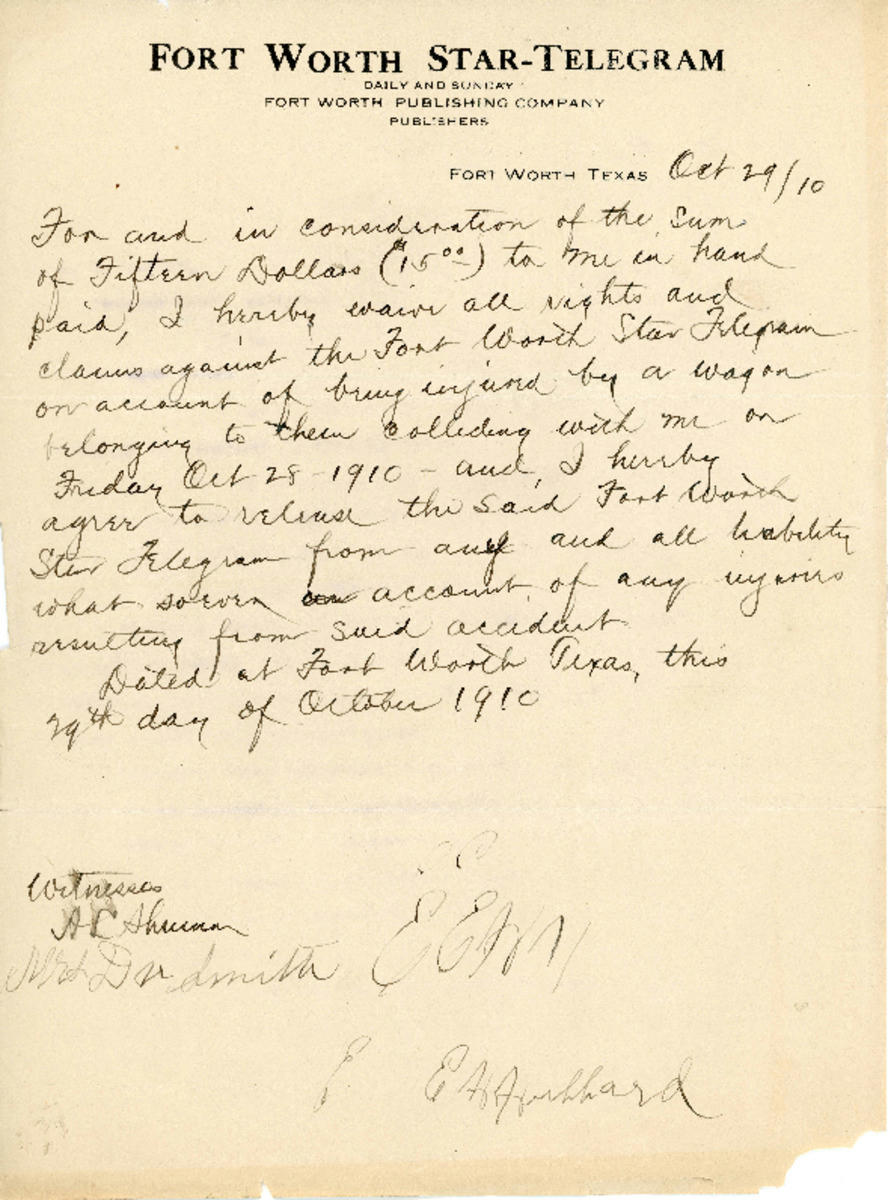 FORT WORTH STAR-TELEGRAM
DAILY AND SUNDAY
FORT WORTH PUBLISHING COMPANY
PUBLISHERS
FORT WORTH TEXAS Oct 29/10
For and in consideration of the sum
of Fifteen Dollars ($15.00) to me in hand
paid, I hereby waive all rights and
claims against the Fort Worth Star Telegram
on account of being injured by a wagon
belonging to them colliding with me on
Friday Oct 28-1910 - and, I hereby
agree to release the said Fort Worth
Star Telegram from any and all liability
what soever on account of any injuries
resulting from said accident
Dated at Fort Worth Texas, this
29th day of October 1910
Witnesses
A L Shuman
Mrs Dr Smith
E E
E E H
E E H Hubbard